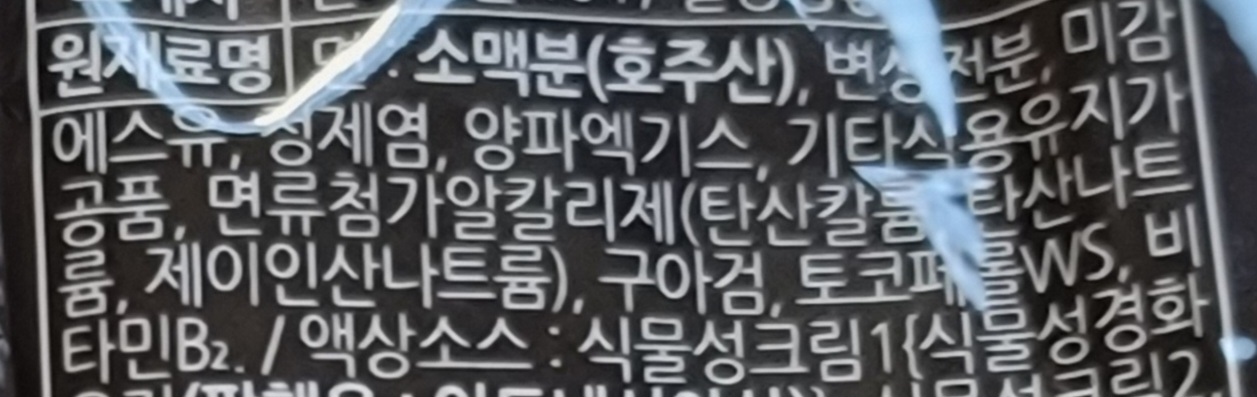 원재료명 면 : 소맥분(호주산), 변성전분, 미감
에스유, 정제염, 양파엑기스, 기타식용유지가
공품, 면류첨가알칼리제(탄산칼륨, 탄산나트
륨, 제이인산나트륨), 구아검, 토코페롤WS, 비
타민B₂. / 액상소스 : 식물성크림1{식물성경화